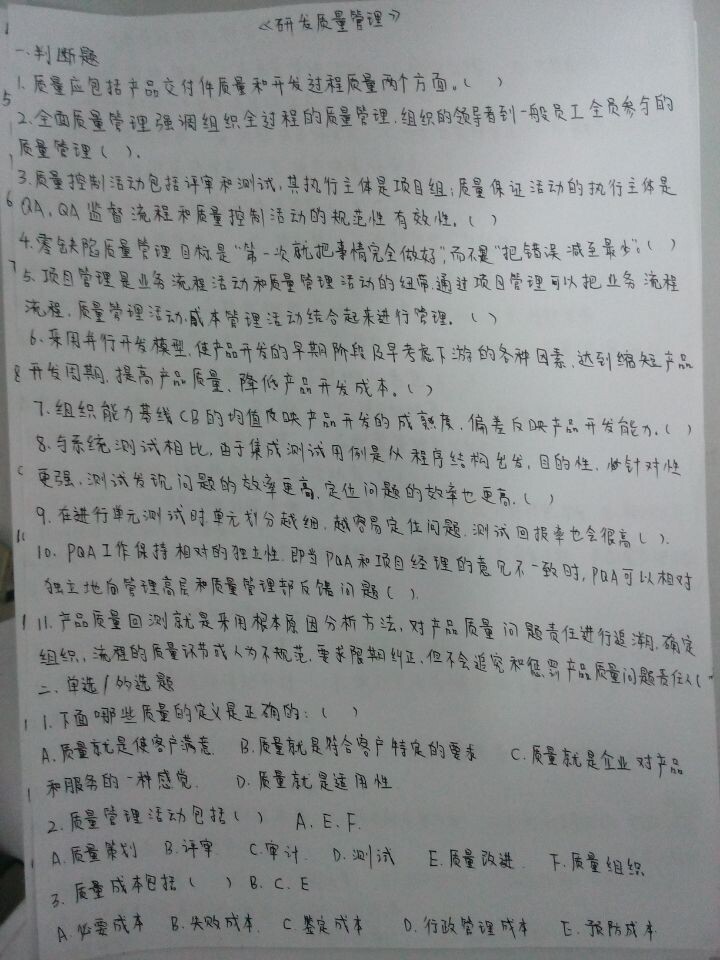 《研发质量管理》
一.判断题
1.质量应包括产品交付件质量和开发过程质量两个方面。( )
2.全面质量管理强调组织全过程的质量管理,组织的领导者到一般员工全员参与的
质量管理( ).
3.质量控制活动包括评审和测试,其执行主体是项目组;质量保证活动的执行主体是
QA,QA监督流程和质量控制活动的规范性有效性。( )
4.零缺陷质量管理目标是“第一次就把事情完全做好”,而不是“把错误减至最少”。( )
5.项目管理是业务流程活动和质量管理活动的纽带,通过项目管理可以把业务流程
流程,质量管理活动,成本管理活动结合起来进行管理。( )
6.采用并行开发模型,使产品开发的早期阶段及早考虑下游的各种因素,达到缩短产品
开发周期,提高产品质量、降低产品开发成本。( )
7.组织能力基线CB的均值反映产品开发的成熟度,偏差反映产品开发能力。( )
8.与系统测试相比,由于集成测试用例是从程序结构出发,目的性,针对性
更强,测试发现问题的效率更高,定位问题的效率也更高.( )
9.在进行单元测试时,单元划分越细,越容易定位问题,测试回报率也会很高( ).
10.PQA工作保持相对的独立性,即当PQA和项目经理的意见不一致时,PQA可以相对
独立地向管理高层和质量管理部反馈问题( ).
11.产品质量回溯就是采用根本原因分析方法,对产品质量问题责任进行追溯,确定
组织,流程的质量环节或人为不规范,要求限期纠正,但不会追究和惩罚产品质量问题责任人(
二.单选/多选题
1.下面哪些质量的定义是正确的:( )
A.质量就是使客户满意. B.质量就是符合客户特定的要求 C.质量就是企业对产品
和服务的一种感觉. D.质量就是适用性
2.质量管理活动包括( ) A.E.F.
A.质量策划 B.评审. C.审计. D.测试 E.质量改进. F.质量组织
3.质量成本包括( ) B.C.E
A.必要成本 B.失败成本. C.鉴定成本 D.行政管理成本 E.预防成本